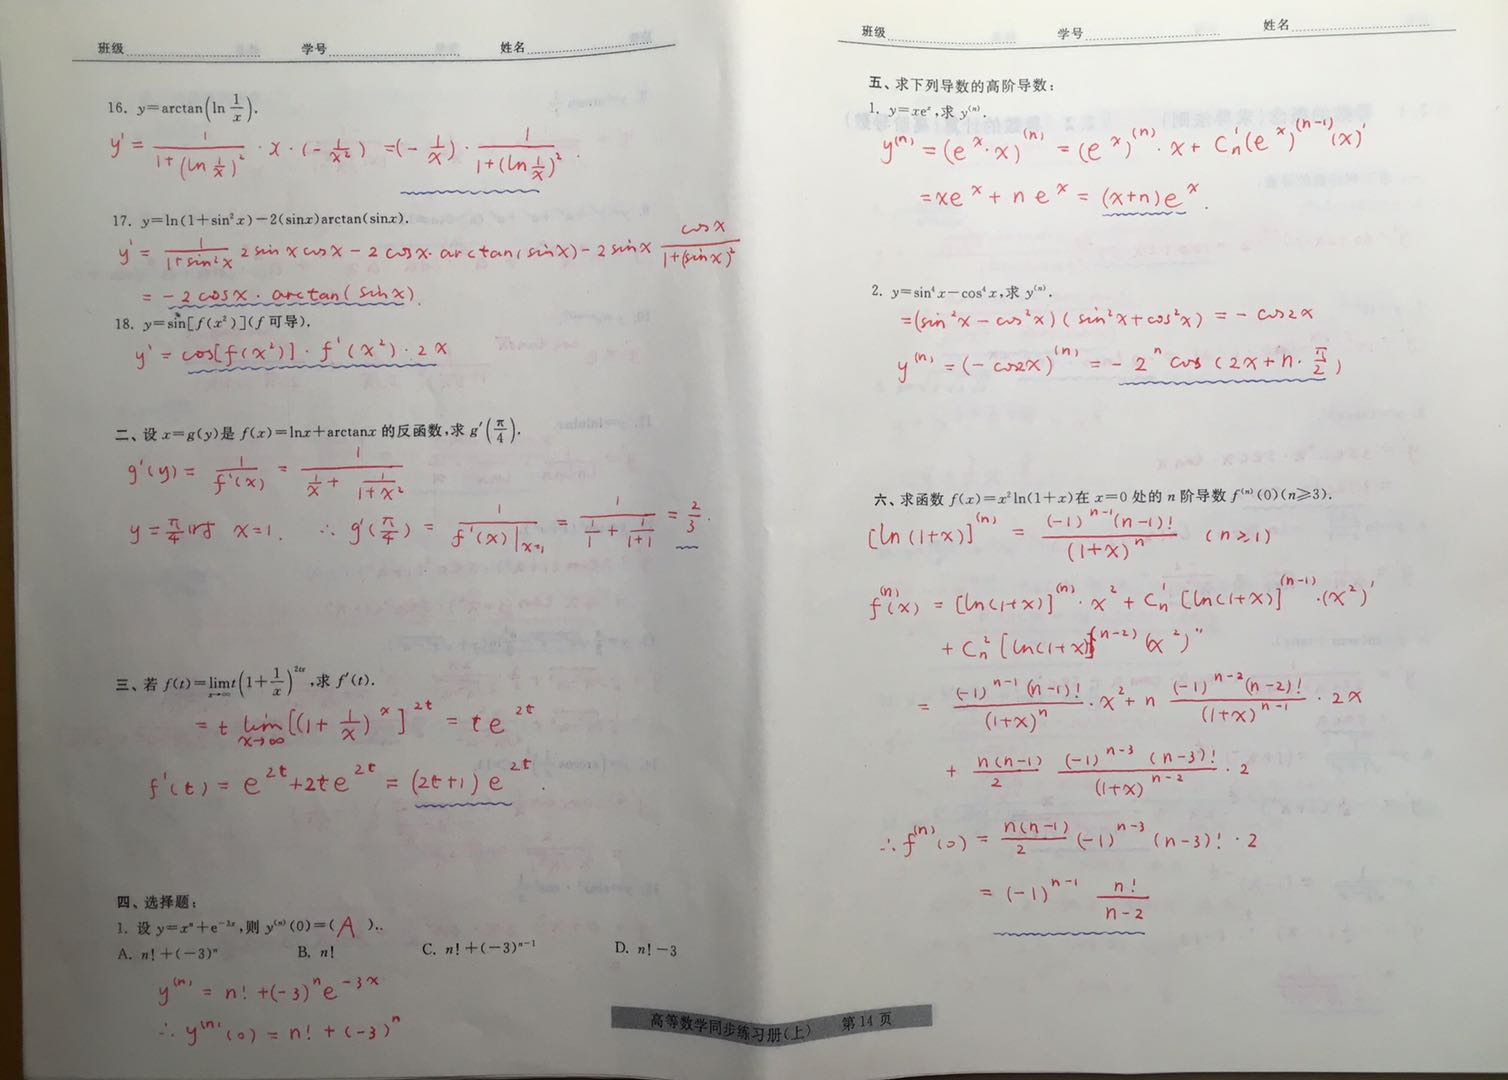 班级 学号 姓名
16. y=arctan(ln 1/x).
y' = 1/(1+(ln 1/x)²) · x · (- 1/x²) = (- 1/x) · 1/(1+(ln 1/x)²).
17. y=ln(1+sin²x)-2(sinx)arctan(sinx).
y' = 1/(1+sin²x) 2 sin x cos x - 2 cos x · arctan(sin x) - 2 sin x cos x/(1+(sin x)²)
= - 2 cos x · arctan(sin x).
18. y=sin[f(x²)](f 可导).
y' = cos[f(x²)] · f'(x²) · 2x
二、设 x=g(y)是 f(x)=lnx+arctanx 的反函数,求 g'(π/4).
g'(y) = 1/f'(x) = 1/(1/x + 1/(1+x²))
y = π/4 时 x=1. ∴ g'(π/4) = 1/f'(x)|x=1 = 1/(1/1 + 1/(1+1)) = 2/3.
三、若 f(t)=lim x→∞ t(1+1/x)^2tx,求 f'(t).
= t lim x→∞ [(1+1/x)^x]^2t = te^2t
f'(t) = e^2t + 2te^2t = (2t+1)e^2t.
四、选择题:
1. 设 y=xⁿ+e^-3x,则 y⁽ⁿ⁾(0)=( A )..
A. n!+(-3)ⁿ B. n! C. n!+(-3)ⁿ⁻¹ D. n!-3
y⁽ⁿ⁾ = n! + (-3)ⁿ e^-3x
∴ y⁽ⁿ⁾(0) = n! + (-3)ⁿ
班级 学号 姓名
五、求下列导数的高阶导数:
1. y=xeˣ,求 y⁽ⁿ⁾.
y⁽ⁿ⁾ = (eˣ·x)⁽ⁿ⁾ = (eˣ)⁽ⁿ⁾ · x + Cₙ¹(eˣ)⁽ⁿ⁻¹⁾(x)'
= xeˣ + neˣ = (x+n)eˣ.
2. y=sin⁴x-cos⁴x,求 y⁽ⁿ⁾.
=(sin²x - cos²x)(sin²x + cos²x) = - cos2x
y⁽ⁿ⁾ = (- cos2x)⁽ⁿ⁾ = - 2ⁿ cos(2x + n · π/2)
六、求函数 f(x)=x²ln(1+x)在 x=0 处的 n 阶导数 f⁽ⁿ⁾(0)(n≥3).
[ln(1+x)]⁽ⁿ⁾ = (-1)ⁿ⁻¹(n-1)!/(1+x)ⁿ (n≥1)
f⁽ⁿ⁾(x) = [ln(1+x)]⁽ⁿ⁾ · x² + Cₙ¹ [ln(1+x)]⁽ⁿ⁻¹⁾ · (x²)'
+ Cₙ² [ln(1+x)]⁽ⁿ⁻²⁾ (x²)''
= (-1)ⁿ⁻¹(n-1)!/(1+x)ⁿ · x² + n (-1)ⁿ⁻²(n-2)!/(1+x)ⁿ⁻¹ · 2x
+ n(n-1)/2 (-1)ⁿ⁻³(n-3)!/(1+x)ⁿ⁻² · 2
∴ f⁽ⁿ⁾(0) = n(n-1)/2 (-1)ⁿ⁻³ (n-3)! · 2
= (-1)ⁿ⁻¹ n!/(n-2)
高等数学同步练习册(上) 第 14 页